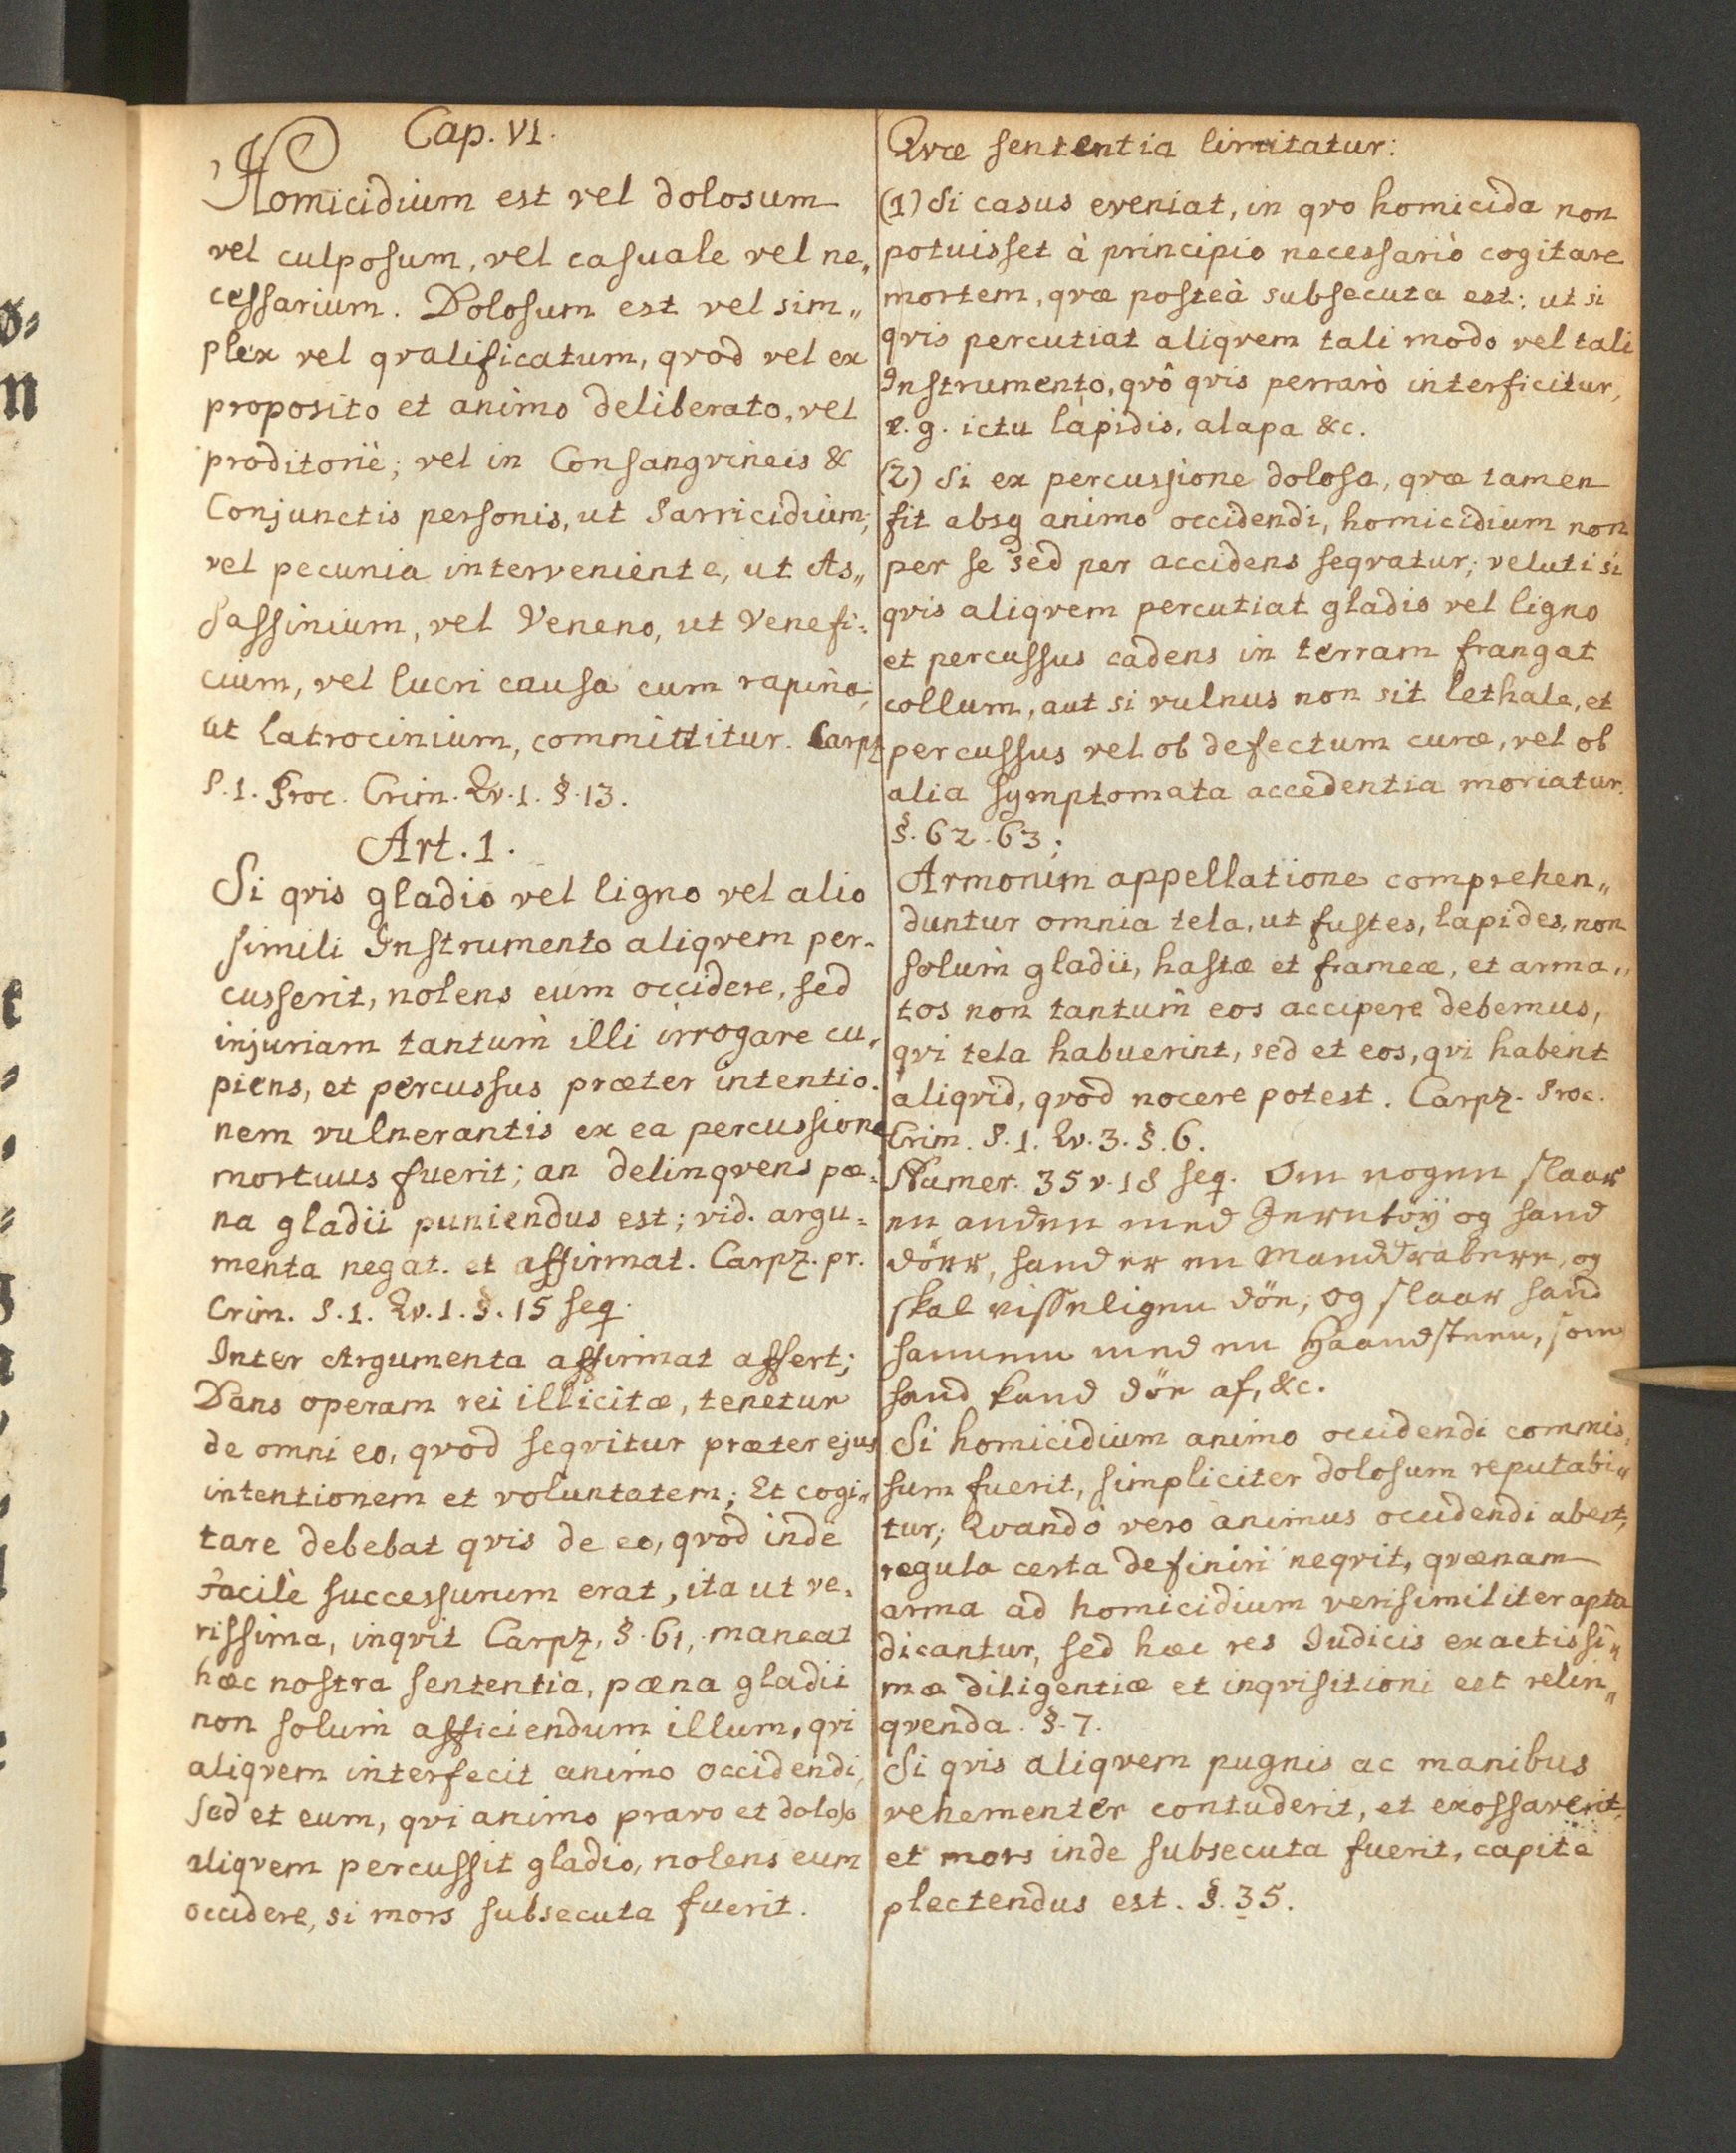 Cap. VI.
Homicidium est vel dolosum
vel culposum, vel casuale vel ne„
cessarium. Dolosum est vel sim„
plex vel qvalificatum, qvod vel ex
proposito et animo deliberato, vel
proditoriè; vel in Consangvineis &
Conjunctis personis, ut Parricidium;
vel pecunia interveniente, ut As„
sassinium, vel Veneno, ut Venefi=
cium, vel lucri causa cum rapina,
ut latrocinium, committitur. Carpz
P.1. Proc. Crim. Qv.1. §.13.
Art. 1.
Si qvis gladio vel ligno vel alio
simili Instrumento aliqvem per-
cusserit, nolens eum occidere, sed
injuriam tantum illi irrogare cu„
piens, et percussus præter intentio-
nem vulnerantis ex ea percussione
mortuus fuerit; an delinqvens pæ=
na gladii puniendus est; vid. argu=
menta negat. et affirmat. Carpz. pr.
Crim. P.1. Qv.1. §.15 seq.
Inter Argumenta affirmat affert;
Dans operam rei illicitæ, tenetur
de omni eo, qvod seqvitur præter ejus
intentionem et voluntatem; Et cogi„
tare debebat qvis de eo, qvod inde
facilè successurum erat, ita ut ve-
rissima, inqvit Carpz, §.61, maneat
hæc nostra sententia, pæna gladii
non solum afficiendum illum, qvi
aliqvem interfecit animo occidendi,
sed et eum, qvi animo pravo et doloso
aliqvem percussit gladio, nolens eum
occidere, si mors subsecuta fuerit.
Qvæ sententia limitatur:
(1) Si casus eveniat, in qvo homicida non
potuisset à principio necessariò cogitare
mortem, qvæ posteà subsecuta est: ut si
qvis percutiat aliqvem tali modo vel tali
Instrumento, qvô qvis perrarò interficitur,
e.g. ictu lapidis, alapa &c.
(2) Si ex percussione dolosa, qvæ tamen
fit absq animo occidendi, homicidium non
per se sed per accidens seqvatur; veluti si
qvis aliqvem percutiat gladio vel ligno
et percussus cadens in terram frangat
collum, aut si vulnus non sit lethale, et
percussus vel ob defectum curæ, vel ob
alia symptomata accedentia moriatur.
§.62.63;
Armorum appellatione comprehen„
duntur omnia tela, ut fustes, lapides, non
solum gladii, hastæ et frameæ, et arma„
tos non tantum eos accipere debemus,
qvi tela habuerint, sed et eos, qvi habent
aliqvid, qvod nocere potest. Carpz. Proc.
Crim. P.1. Qv.3. §.6.
Numer. 35 v.18 seq. Om nogen slaar
en anden med Jerntöÿ og hand
döer, hand er en Manddrabere, og
skal visseligen döe; og slaar hand
hannem med en Haandsteen, som
hand kand döe af, &c.
Si homicidium animo occidendi commis„
sum fuerit, simpliciter dolosum reputabi„
tur; Qvando vero animus occidendi abest,
regula certa definiri neqvit, qvænam
arma ad homicidium verisimiliter apta
dicantur, sed hæc res Iudicis exactissi„
mæ diligentiæ et inqvisitioni est relin„
qvenda. §.7.
Si qvis aliqvem pugnis ac manibus
vehementer contuderit, et exossaverit,
et mors inde subsecuta fuerit, capite
plectendus est. §.35.